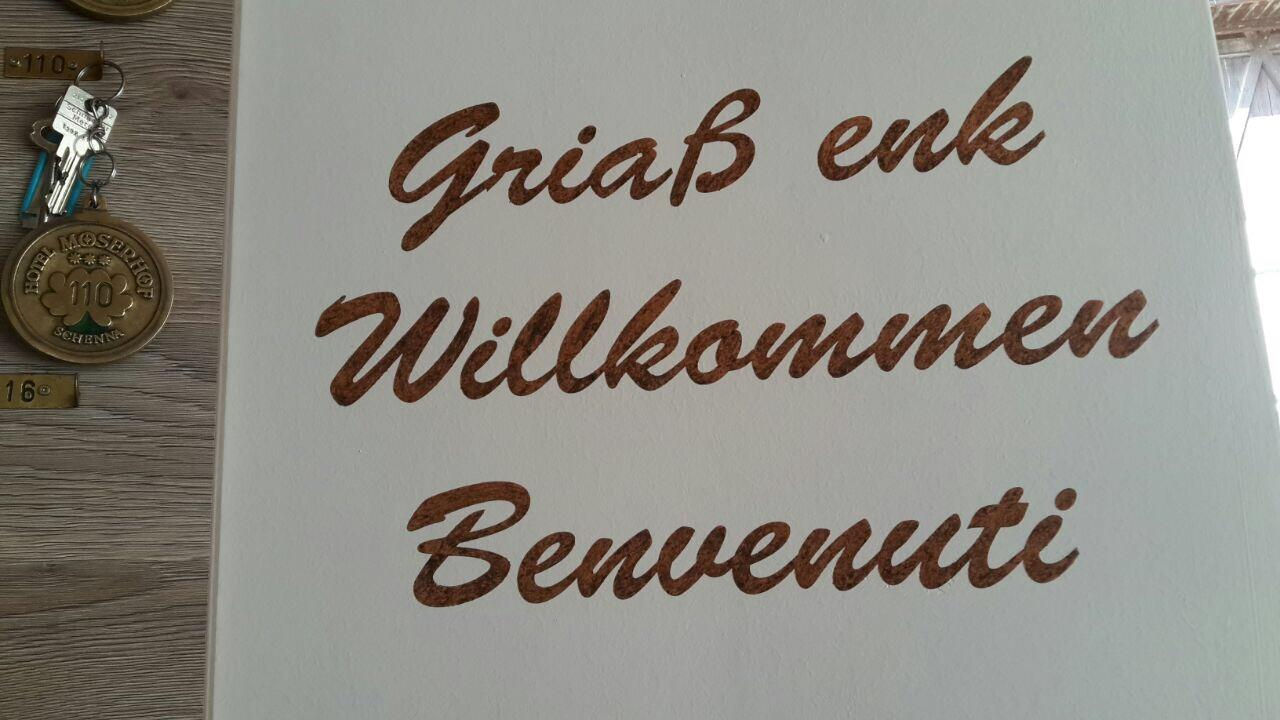 Griaß enk
Willkommen
Benvenuti
110
HOTEL MOSERHOF
110
SCHENNA
16